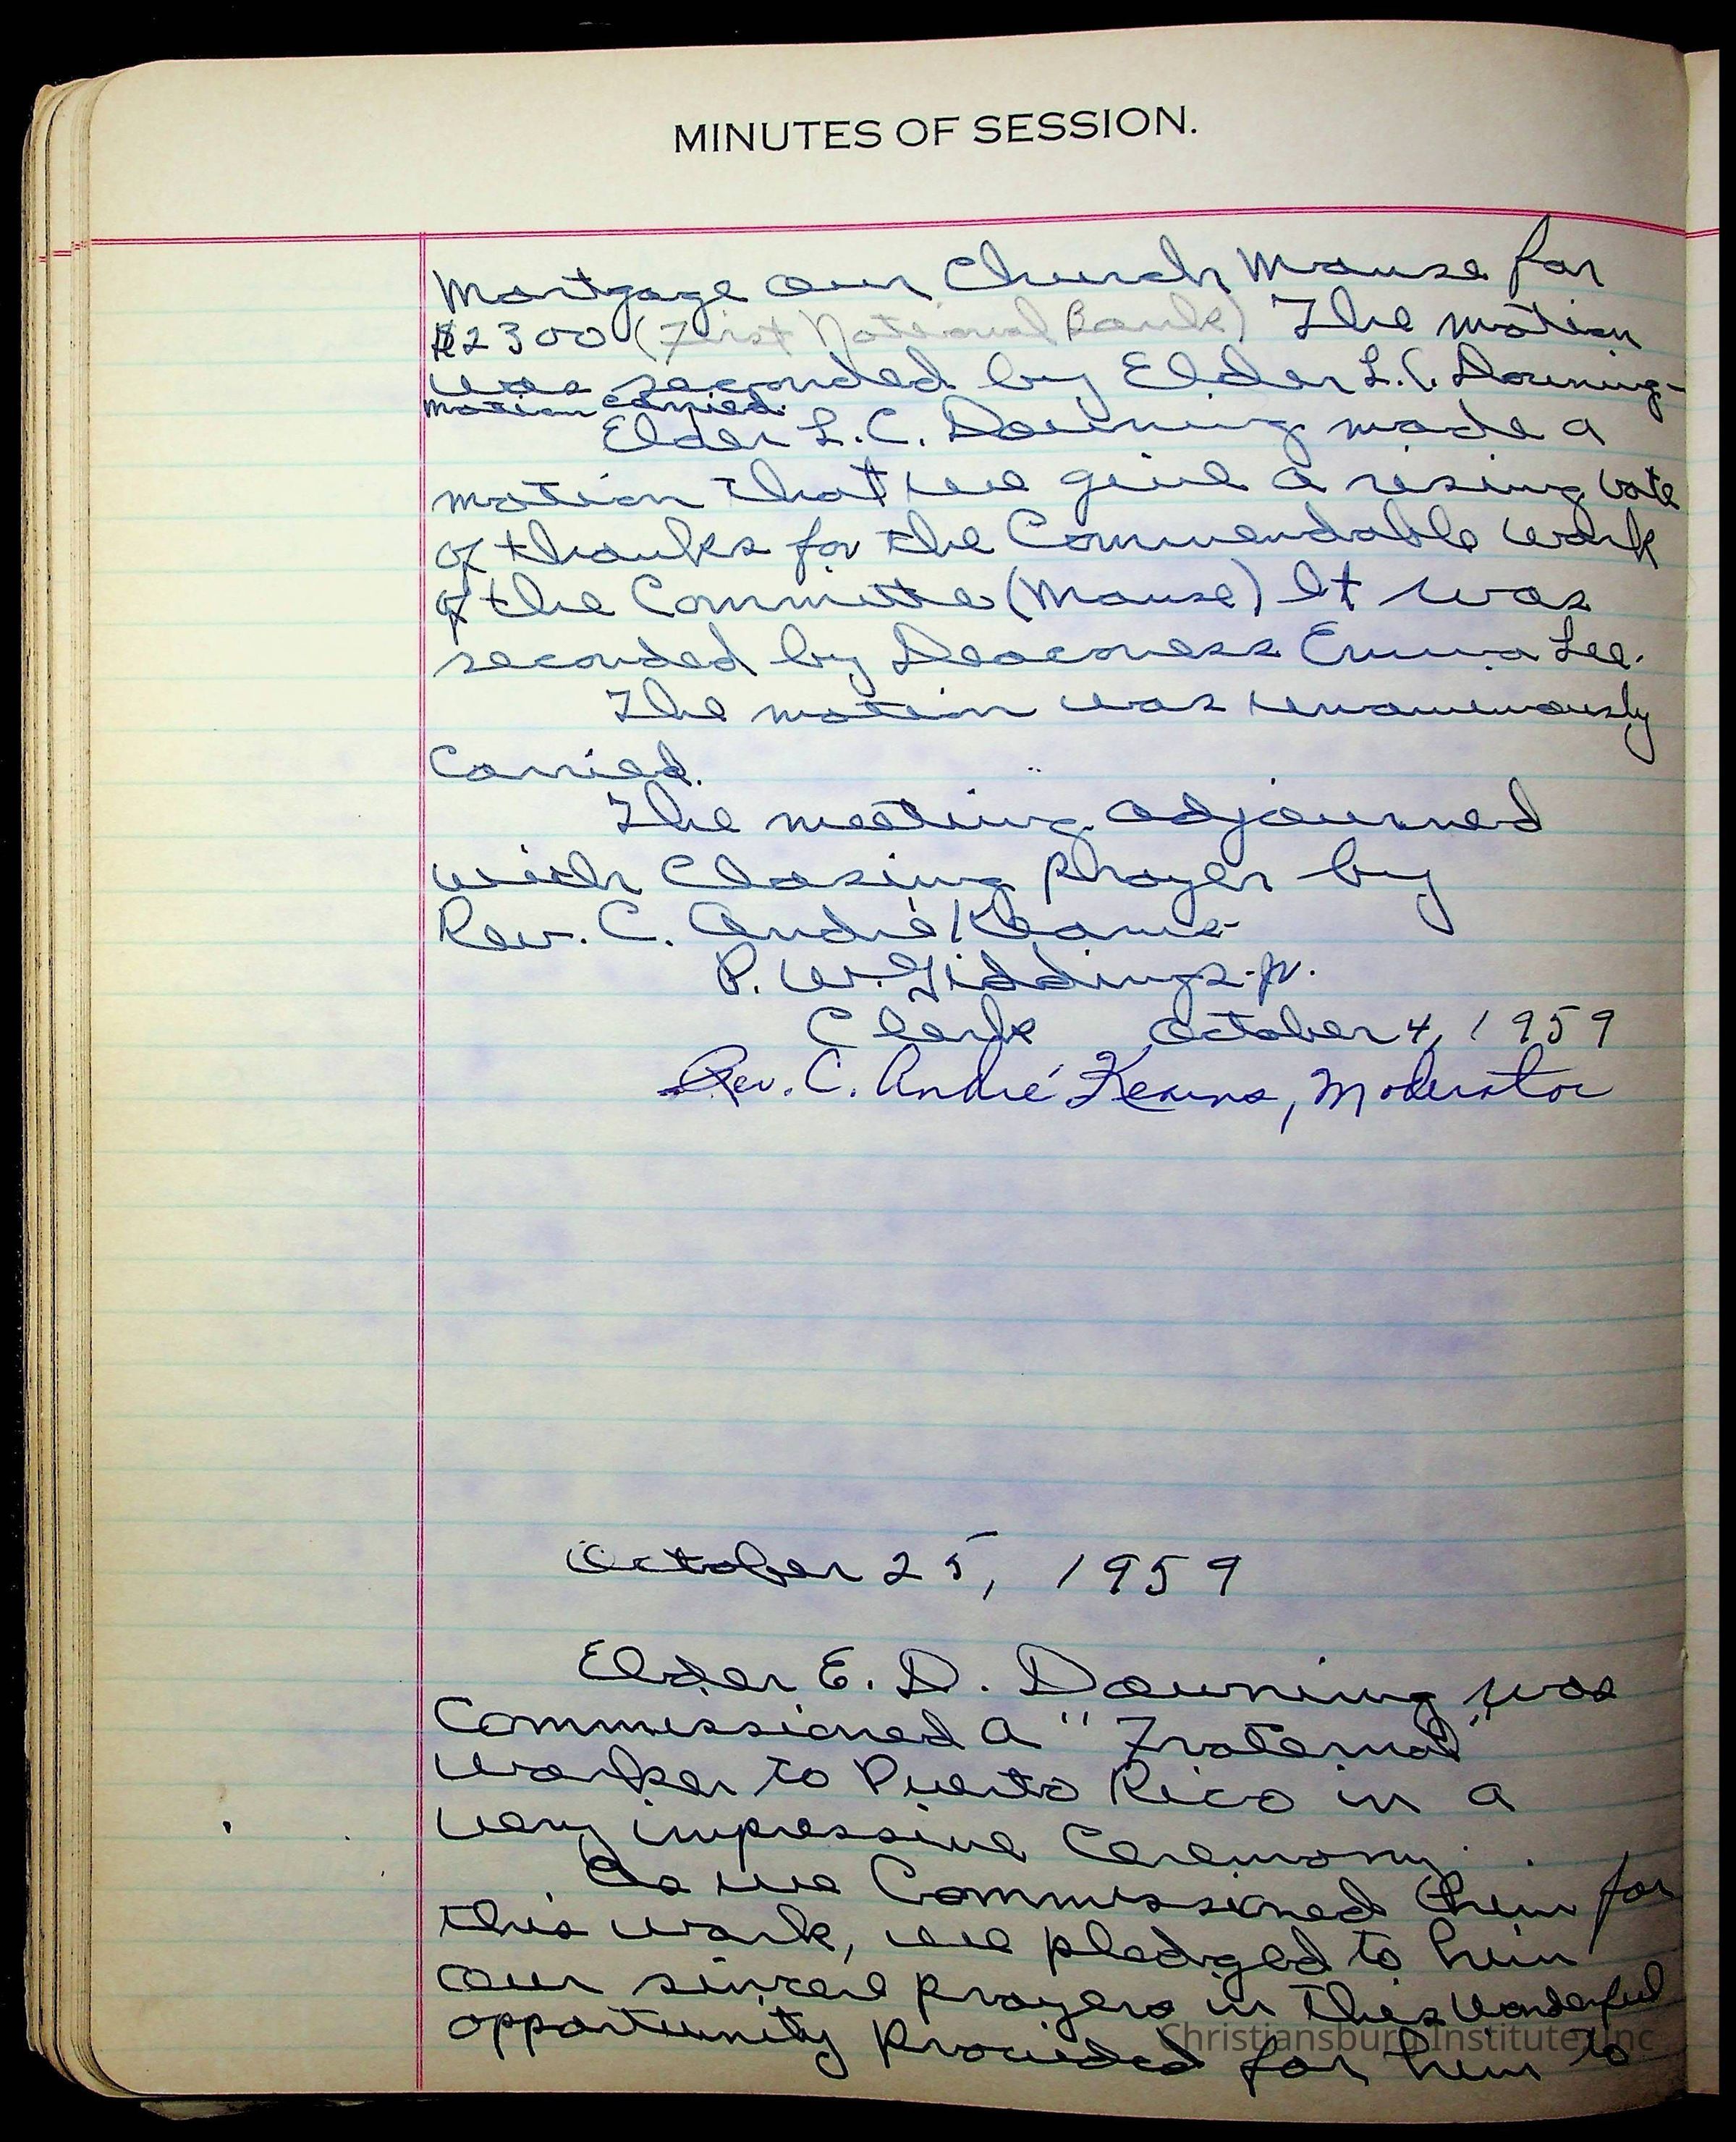 MINUTES OF SESSION.
Mortgage our Church Manse for
$2300 (First National Bank) The motion
was seconded by Elder L.C. Downing-
motion carried.
Elder L.C. Downing made a
motion that we give a rising vote
of thanks for the Commendable work
of the Committe (Manse) It was
seconded by Deaconess Emma Lee.
The motion was unanimously
Carried.
The meeting adjourned
with Closing Prayer by
Rev. C. Andre Kearns-
P. W. Giddings-Jr.
Clerk October 4, 1959
Rev. C. André Kearns, Moderator
October 25, 1959
Elder E. D. Downing was
Commissioned a "Fraternal"
Worker to Puerto Rico in a
very impressive Ceremony.
As we Commissioned them for
this work, we pledged to him
our sincere prayers in this wonderful
opportunity Provided for him to
Christiansburg Institute, Inc